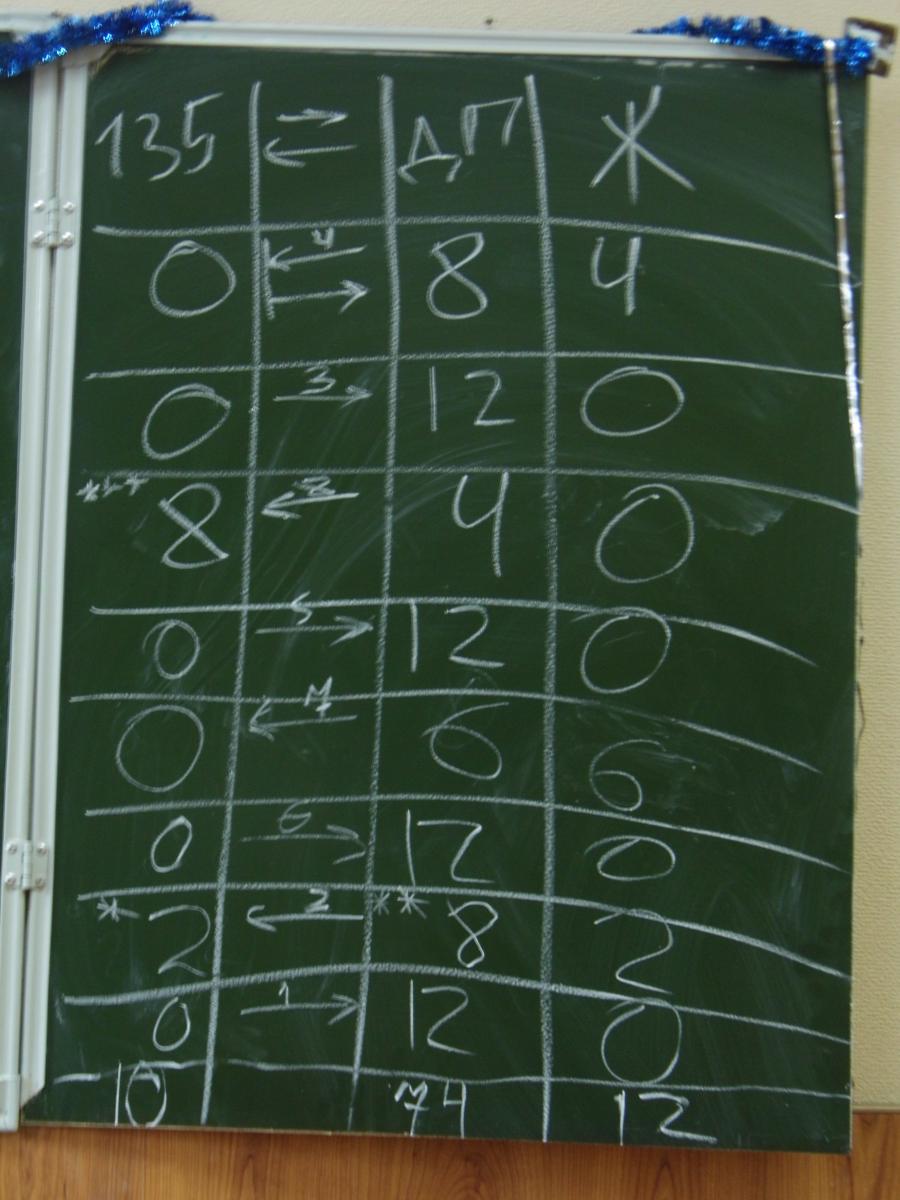 135 ⇄ ДП Ж
0 4 ← → 8 4
0 3 → 12 0
*** 8 8 ← 4 0
0 5 → 12 0
0 7 ← 6 6
0 6 → 12 0
* 2 2 ← ** 8 2
0 1 → 12 0
10 74 12